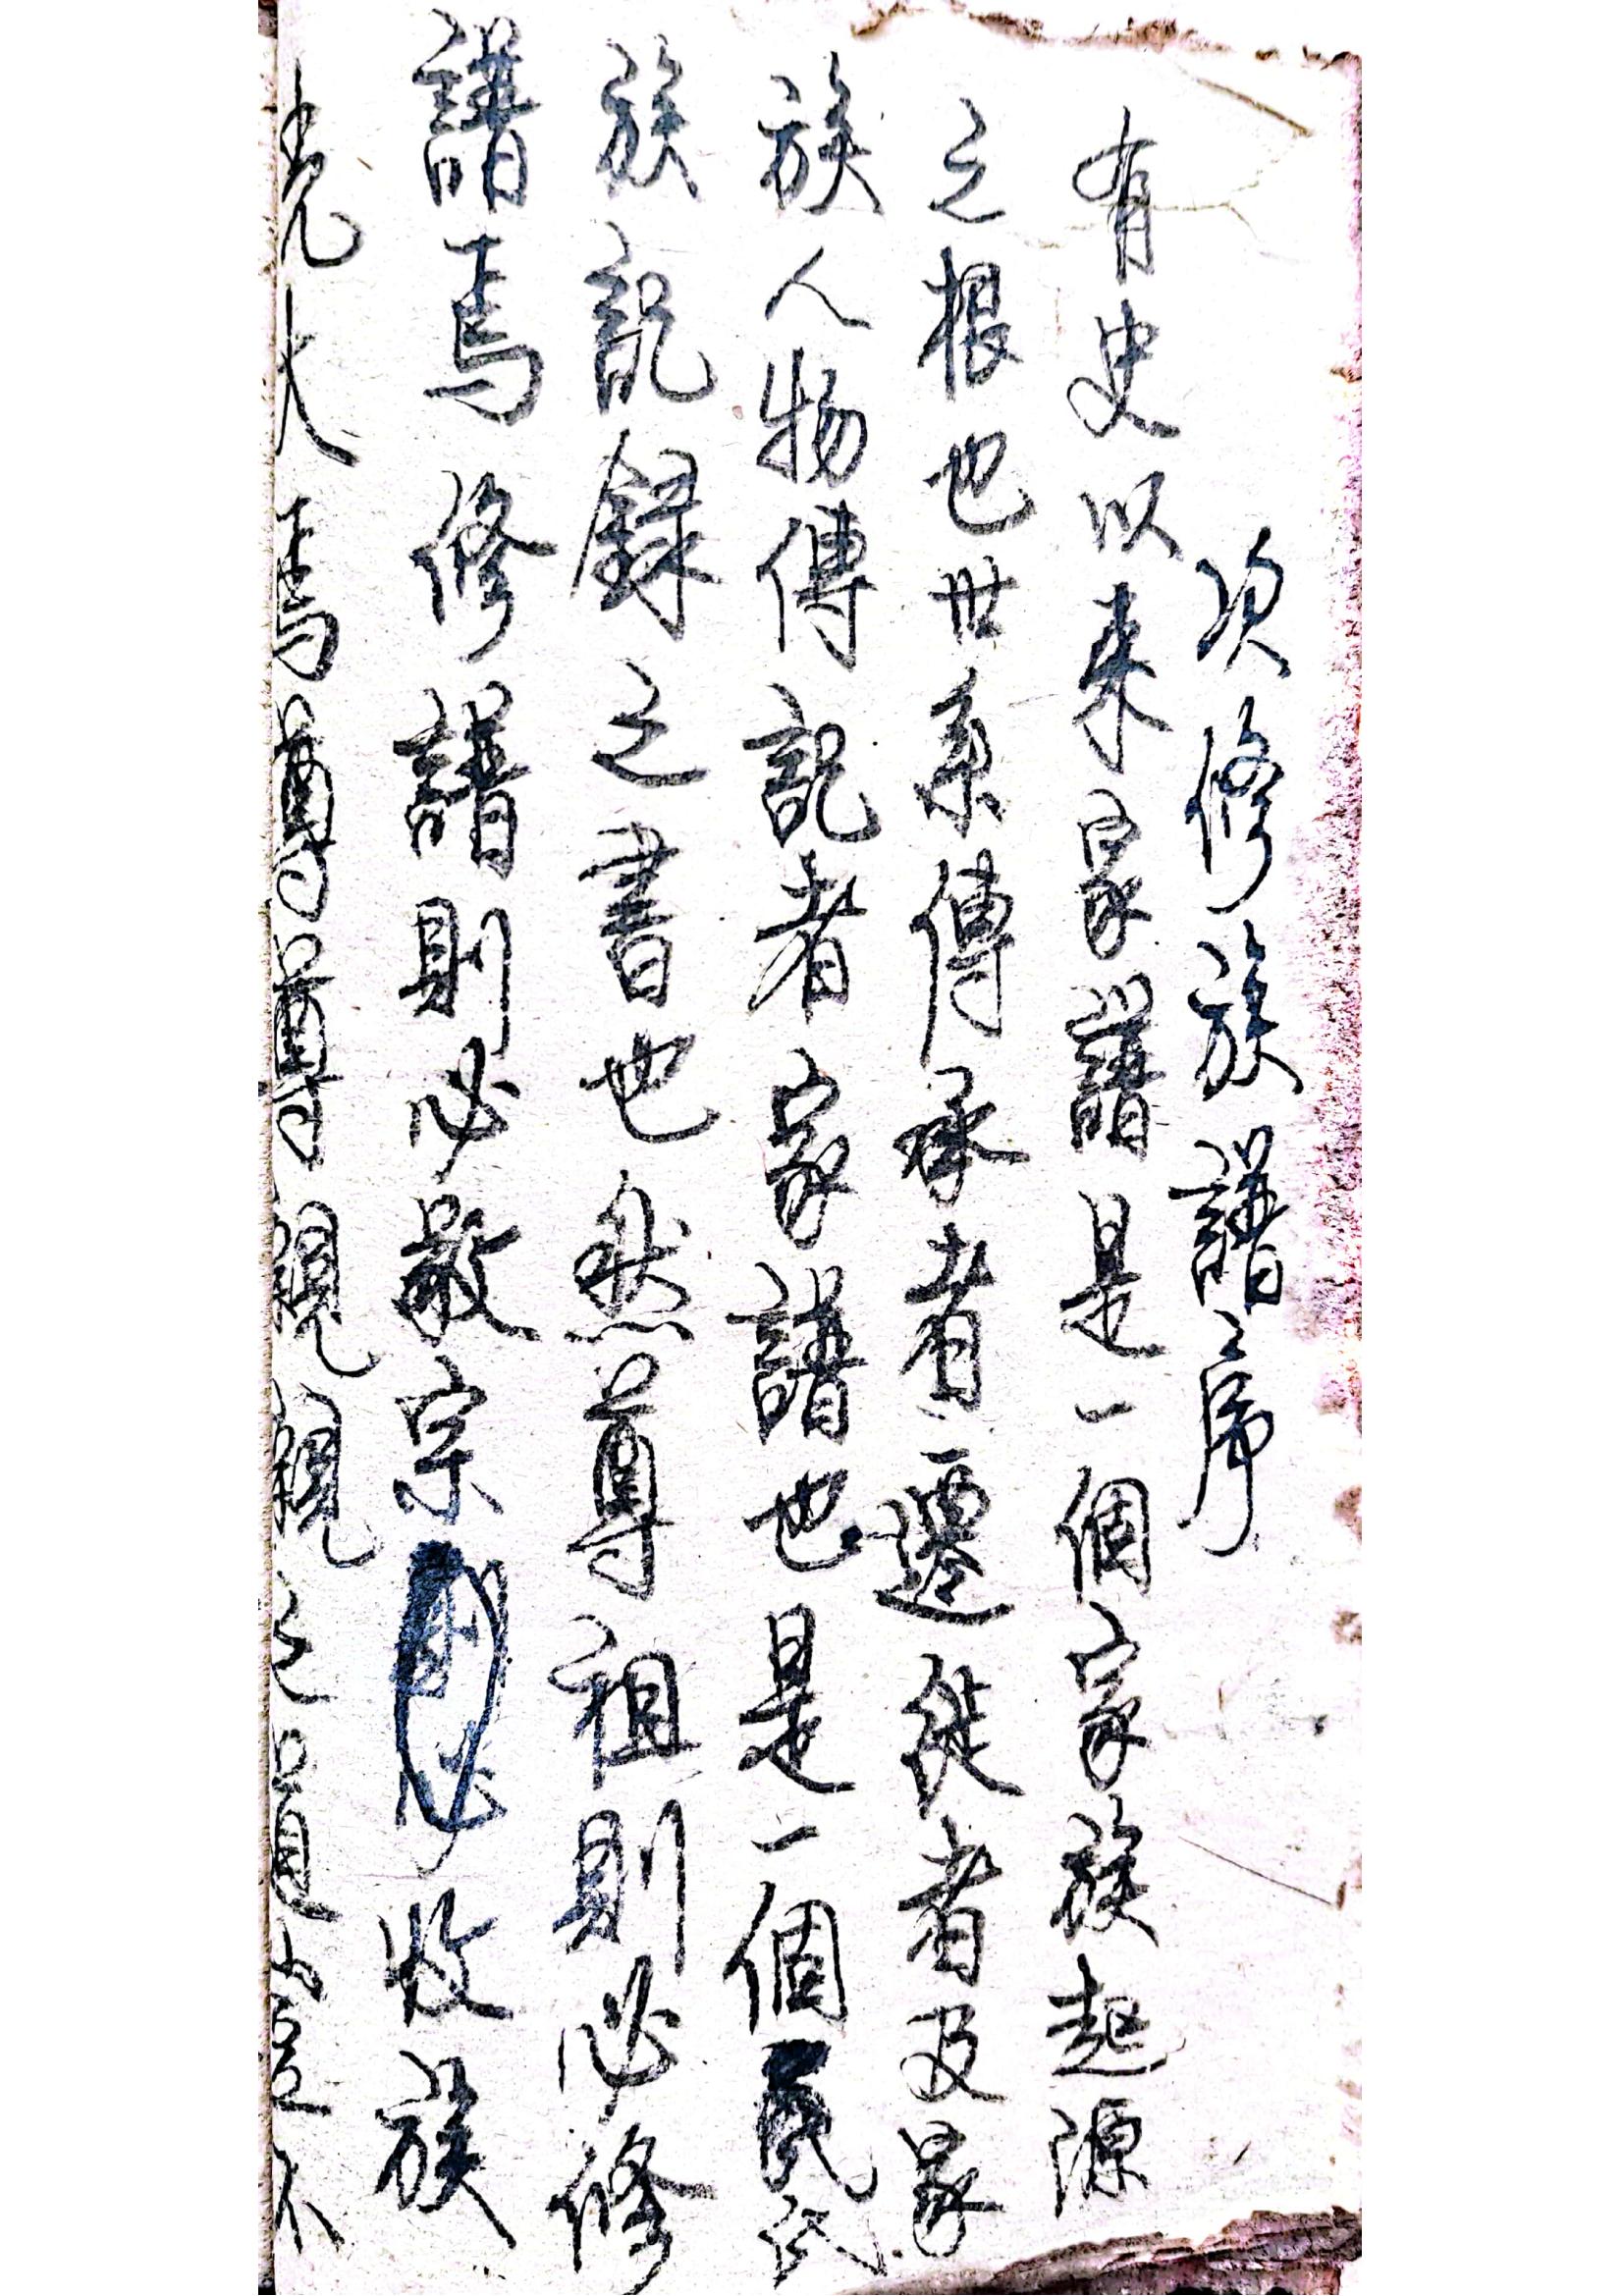 次修族譜序
有史以来家譜是一個家族起源
之根也世系傳承者遷徙者及家
族人物傳記者家譜也是一個民氏
族記錄之書也然尊祖則必修
譜焉修譜則必敬宗則必收族
光大焉尊尊親親之道豈不